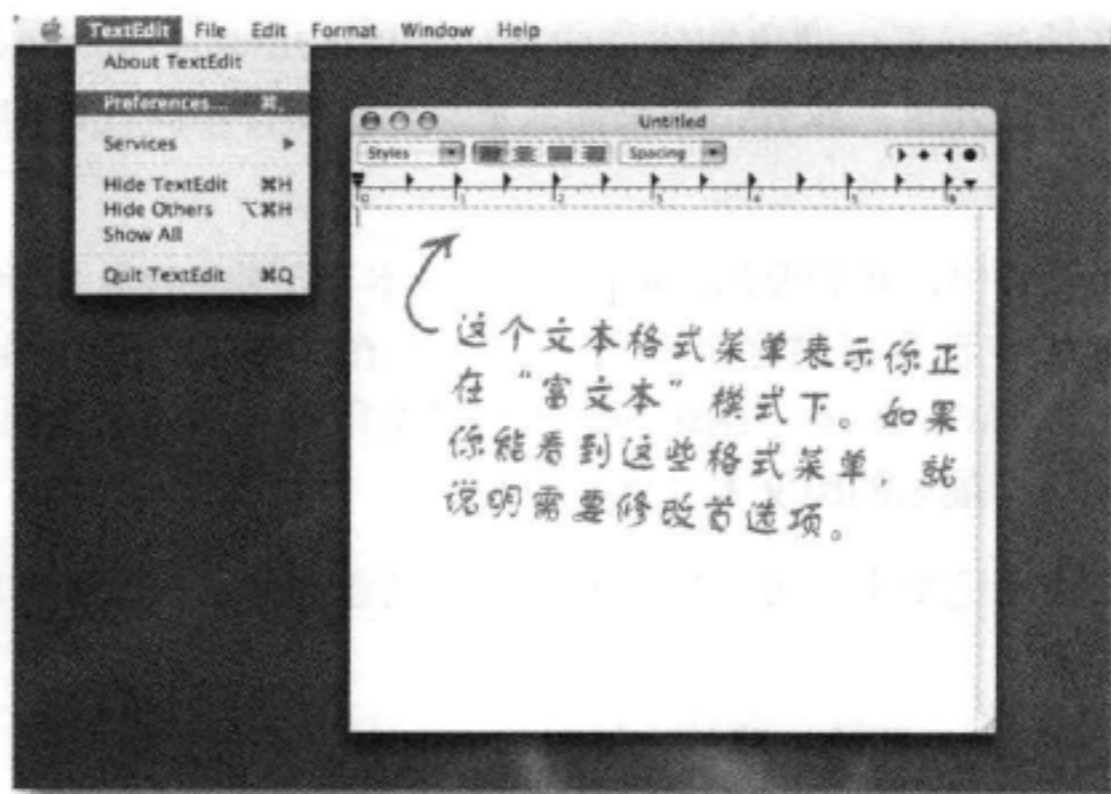 TextEdit File Edit Format Window Help
About TextEdit
Preferences... ⌘,
Services ▶
Hide TextEdit ⌘H
Hide Others ⌥⌘H
Show All
Quit TextEdit ⌘Q
Untitled
Styles Spacing
0 1 2 3 4 5 6
这个文本格式菜单表示你正
在“富文本”模式下。如果
你能看到这些格式菜单，就
说明需要修改首选项。